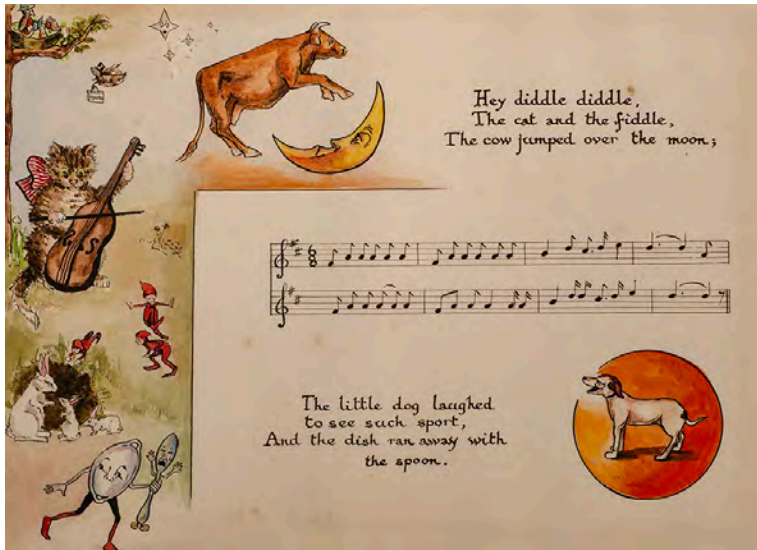 Hey diddle diddle,
The cat and the fiddle,
The cow jumped over the moon;
6
8
The little dog laughed
to see such sport,
And the dish ran away with
the spoon.